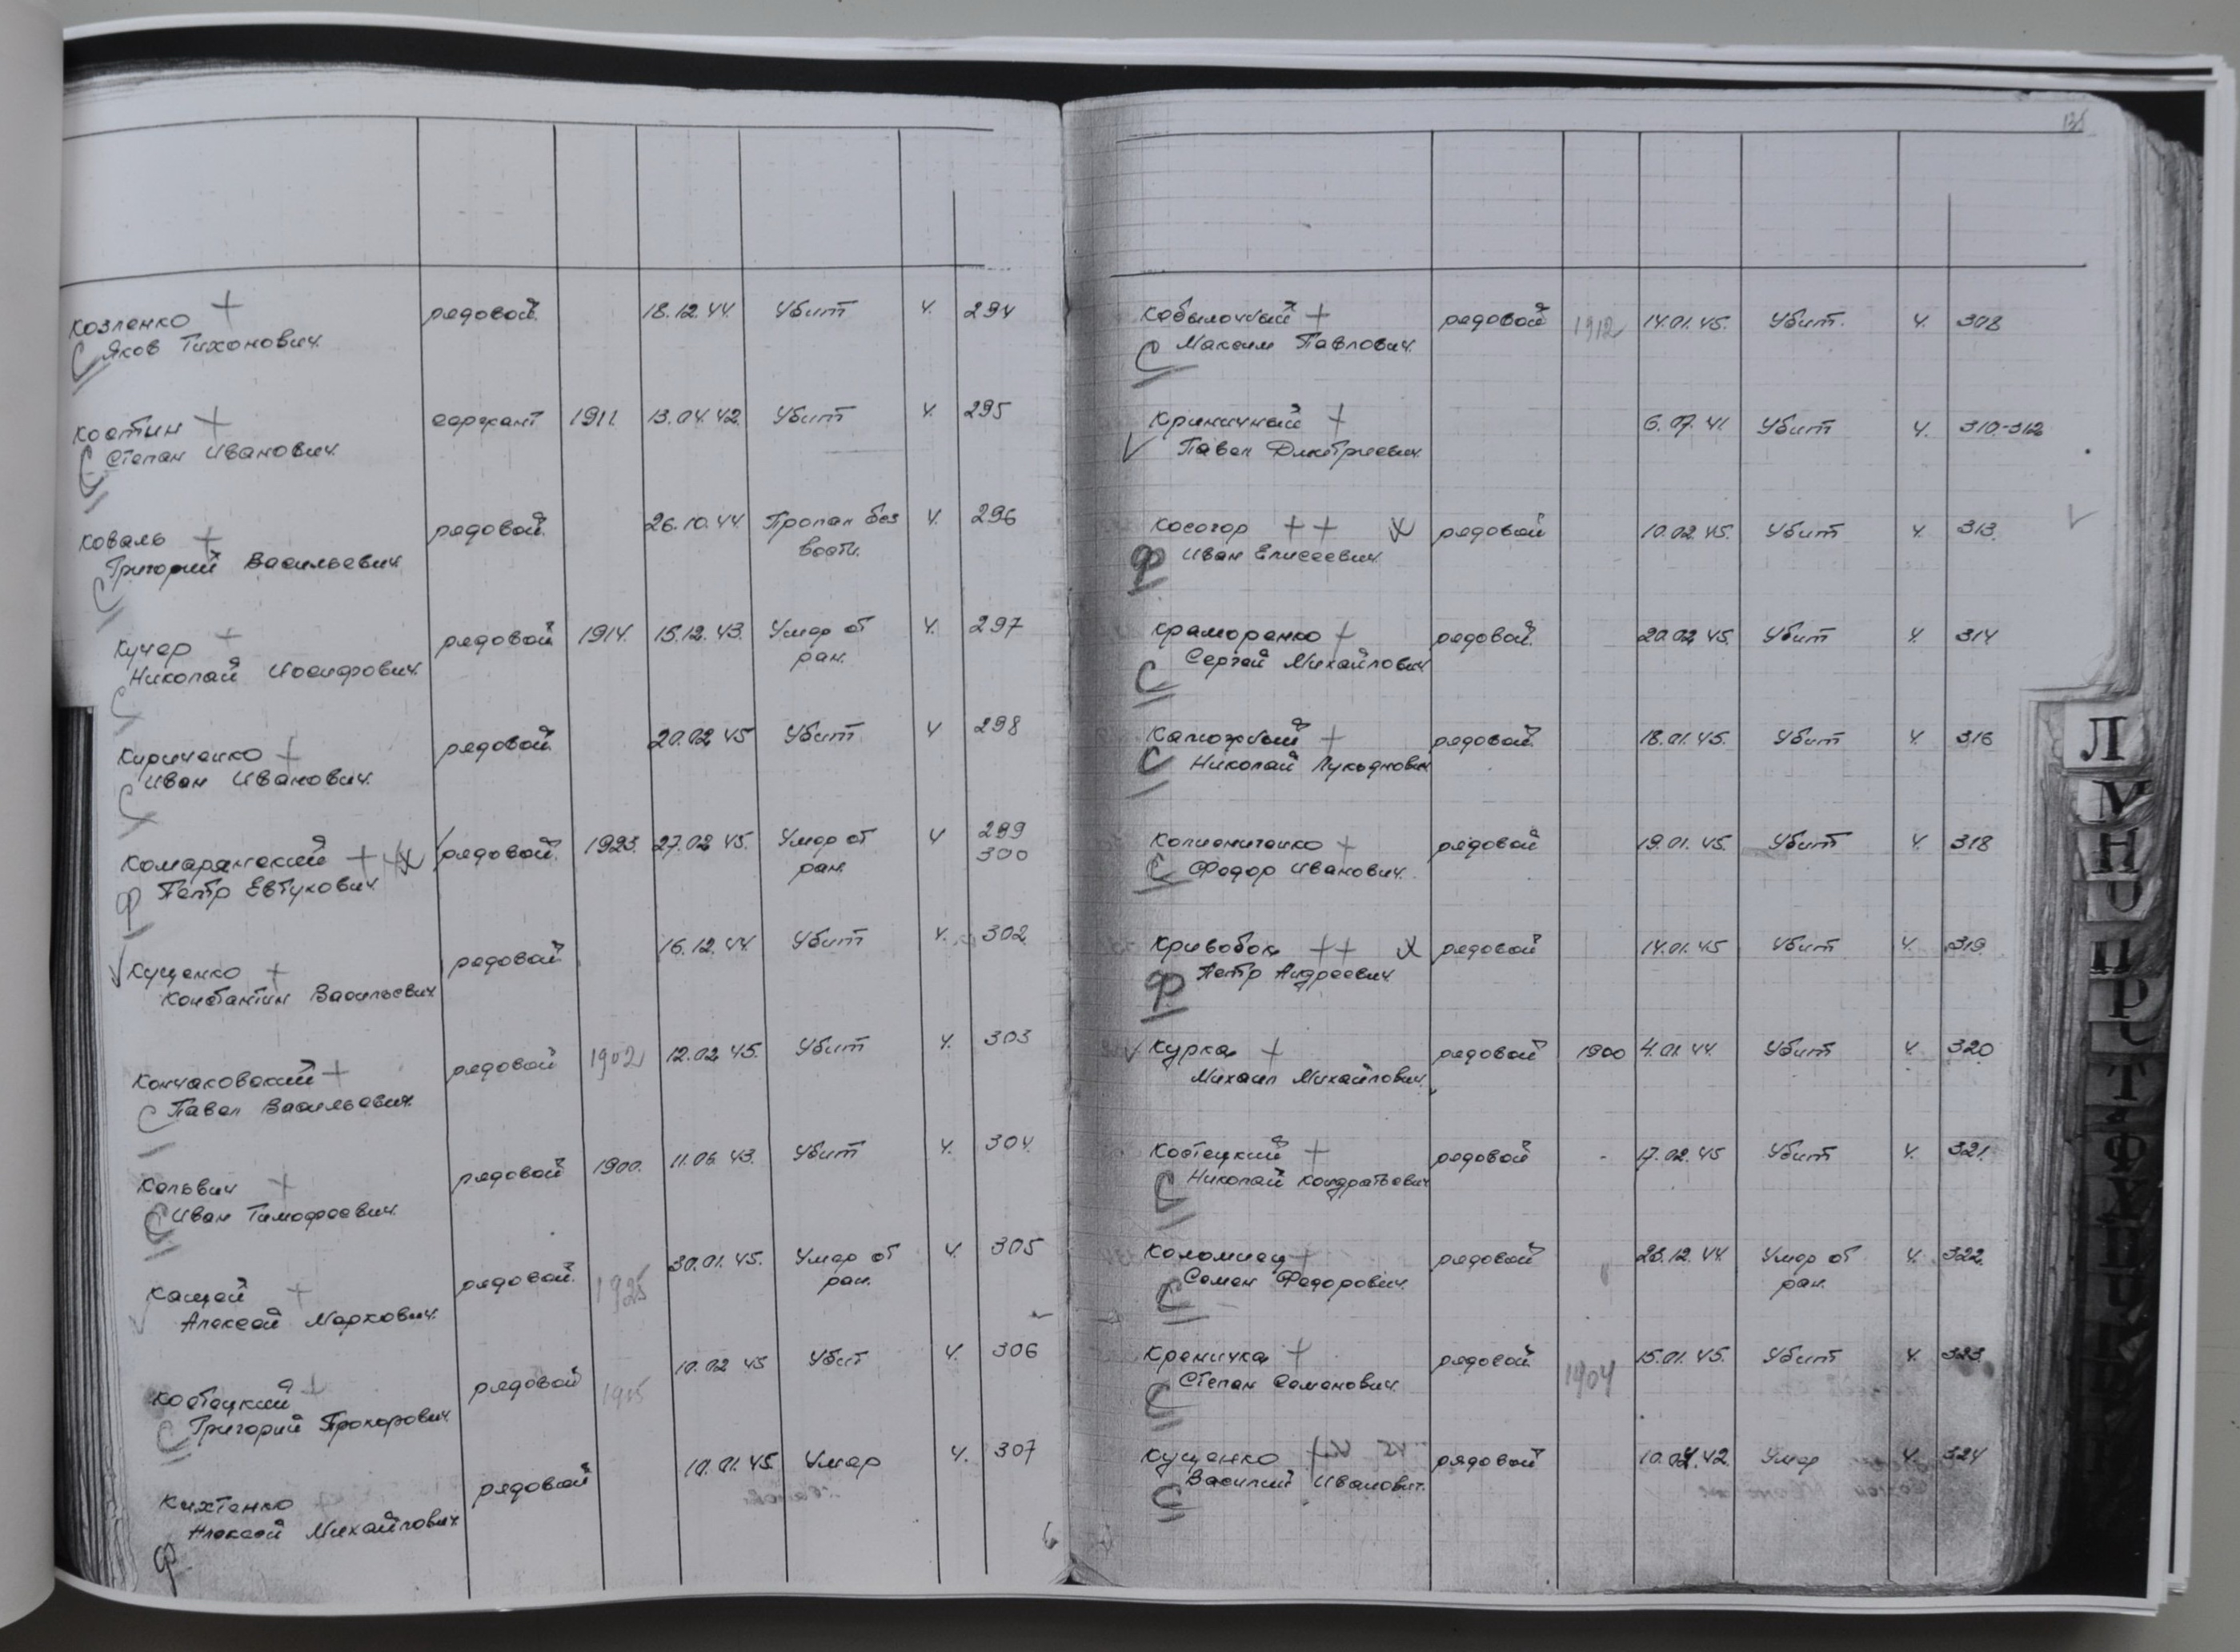 Козленко + рядовой. 18.12.44. Убит ч. 294
С Яков Тихонович.
Костин + сержант 1911. 13.04.42. Убит ч. 295
С Степан Иванович.
Коваль + рядовой. 26.10.44. Пропал без ч. 296
Григорий Васильевич вести.
С
Кучер + рядовой 1914. 15.12.43. Умер от ч. 297
Николай Иосифович. ран.
С
Кириченко + рядовой. 20.02.45 Убит ч 298
С Иван Иванович.
Комарянский + + рядовой. 1923. 27.02.45. Умер от ч 299
300
Ф Петр Евтухович ран.
Кущенко + рядовой 16.12.44. Убит ч. 302
Константин Васильевич
Кончаковский + рядовой 1902 12.02.45. Убит ч. 303
С Павел Васильевич.
Кельвич + рядовой 1900. 11.06.43. Убит ч. 304
С Иван Тимофеевич.
Кащей + рядовой. 1925 30.01.45. Умер от ч. 305
Алексей Маркович. ран.
Костецкий + рядовой 10.02.45 Убит ч. 306
С Григорий Прохорович
Кихтенко рядовой 10.01.45. Умер ч. 307
Алексей Михайлович
Ф
135
Кобылочный + рядовой 1912 14.01.45. Убит. ч. 308
С Максим Павлович.
Криничный + 6.07.41. Убит ч. 310-312
Павел Дмитриевич
Косогор + + рядовой 10.02.45. Убит ч. 313
Ф Иван Елисеевич
Краморенко + рядовой. 20.02.45. Убит ч. 314
С Сергей Михайлович
Калюжный + рядовой. 18.01.45. Убит ч. 316
С Николай Лукьянович
Копиениченко + рядовой 19.01.45. Убит ч. 318
С Федор Иванович.
Кривобок + + рядовой 14.01.45 Убит ч. 319
Ф Петр Андреевич
Курка + рядовой 1900 4.01.44. Убит ч. 320
Михаил Михайлович.
Костецкий + рядовой - 17.02.45 Убит ч. 321.
С Николай Кондратьевич
Коломиец + рядовой 23.12.44 Умер от ч. 322
С Семен Федорович. ран.
Креничка + рядовой. 1904 15.01.45. Убит ч. 323
С Степан Семенович.
Кущенко + рядовой 10.04.42. Умер ч. 324
С Василий Иванович.
Л
М
Н
О
П
Р
С
Т
Ф